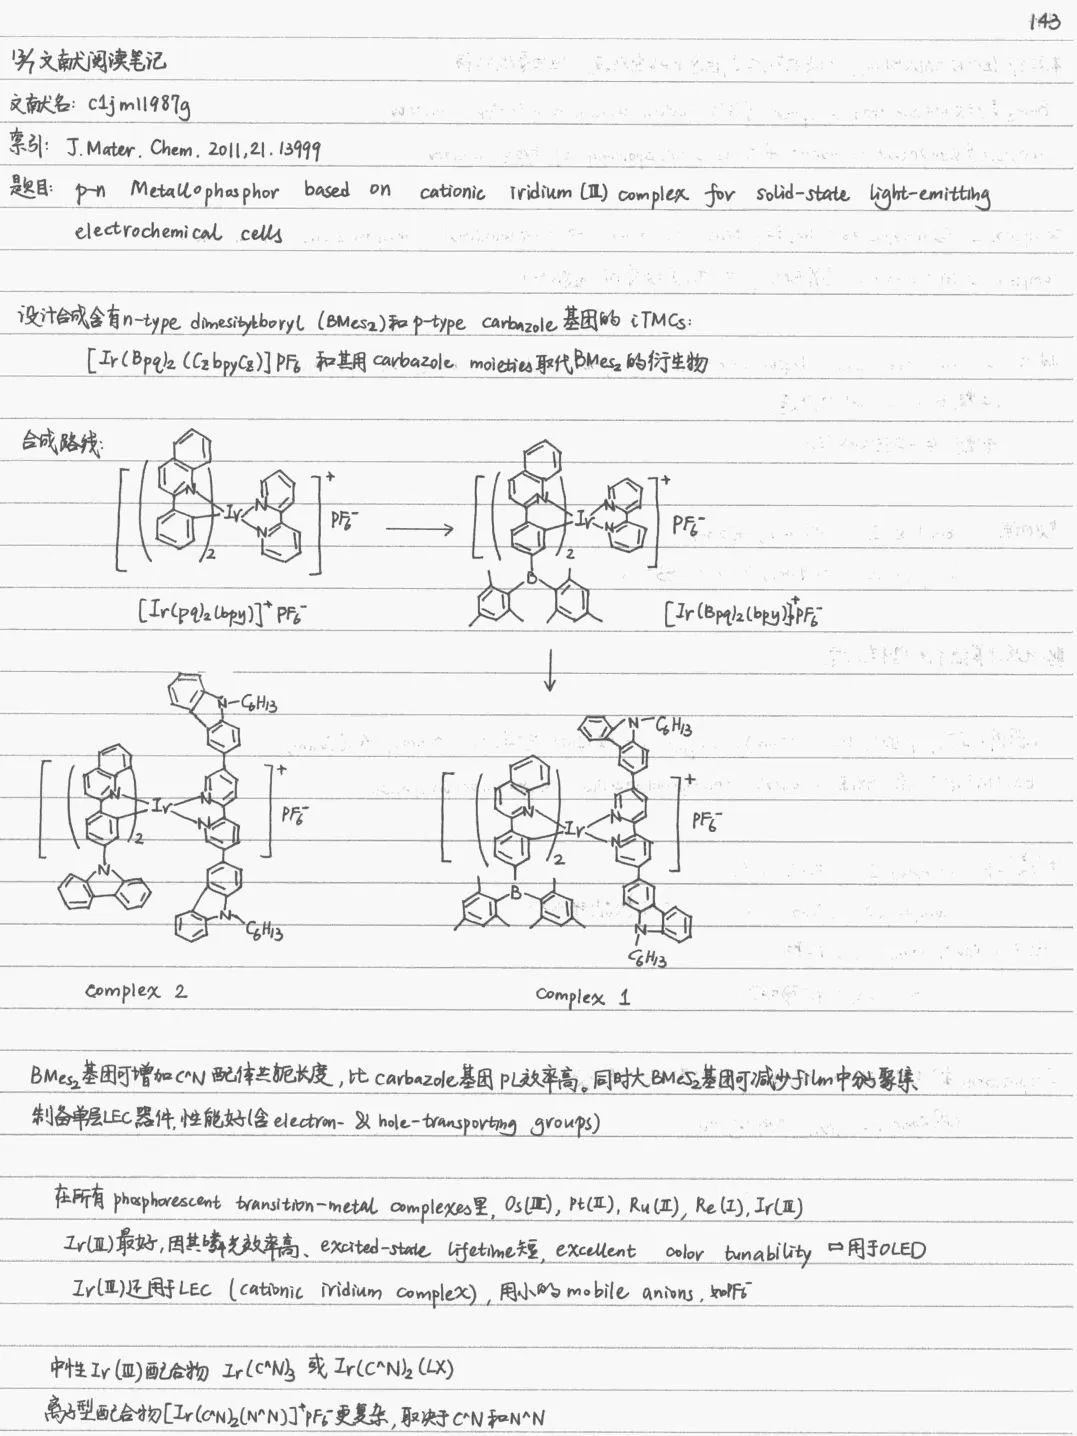 143
13/文献阅读笔记
文献名: c1jm11987g
索引: J. Mater. Chem. 2011, 21. 13999
题目: p-n Metallophosphor based on cationic iridium (III) complex for solid-state light-emitting
electrochemical cells
设计合成含有n-type dimesitylboryl (BMes2)和p-type carbazole基团的 iTMCs:
[Ir(Bpq)2 (CzbpyCz)]PF6 和其用 carbazole moieties取代BMes2的衍生物
合成路线:
[( N Ir N N )2]+ PF6- → [( N Ir N N )2 B]+ PF6-
[Ir(pq)2(bpy)]+ PF6-
[Ir(Bpq)2(bpy)]+PF6-
N-C6H13
N-C6H13
[( N Ir N N )2 N]+ PF6-
[( N Ir N N )2 B]+ PF6-
N-C6H13
N
C6H13
complex 2
complex 1
BMes2基团可增加C^N配体共轭长度, 比 carbazole基团 PL效率高。同时大BMes2基团可减少film中分子聚集
制备单层LEC器件, 性能好(含electron- & hole-transporting groups)
在所有phosphorescent transition-metal complexes里, Os(II), Pt(II), Ru(II), Re(I), Ir(III)
Ir(III)最好, 因其磷光效率高、excited-state lifetime短, excellent color tunability ⇨用于OLED
Ir(III)还用于LEC (cationic iridium complex), 用小的mobile anions, 如PF6-
中性Ir(III)配合物 Ir(C^N)3 或 Ir(C^N)2(LX)
离子型配合物[Ir(C^N)2(N^N)]+PF6-更复杂, 取决于C^N和N^N